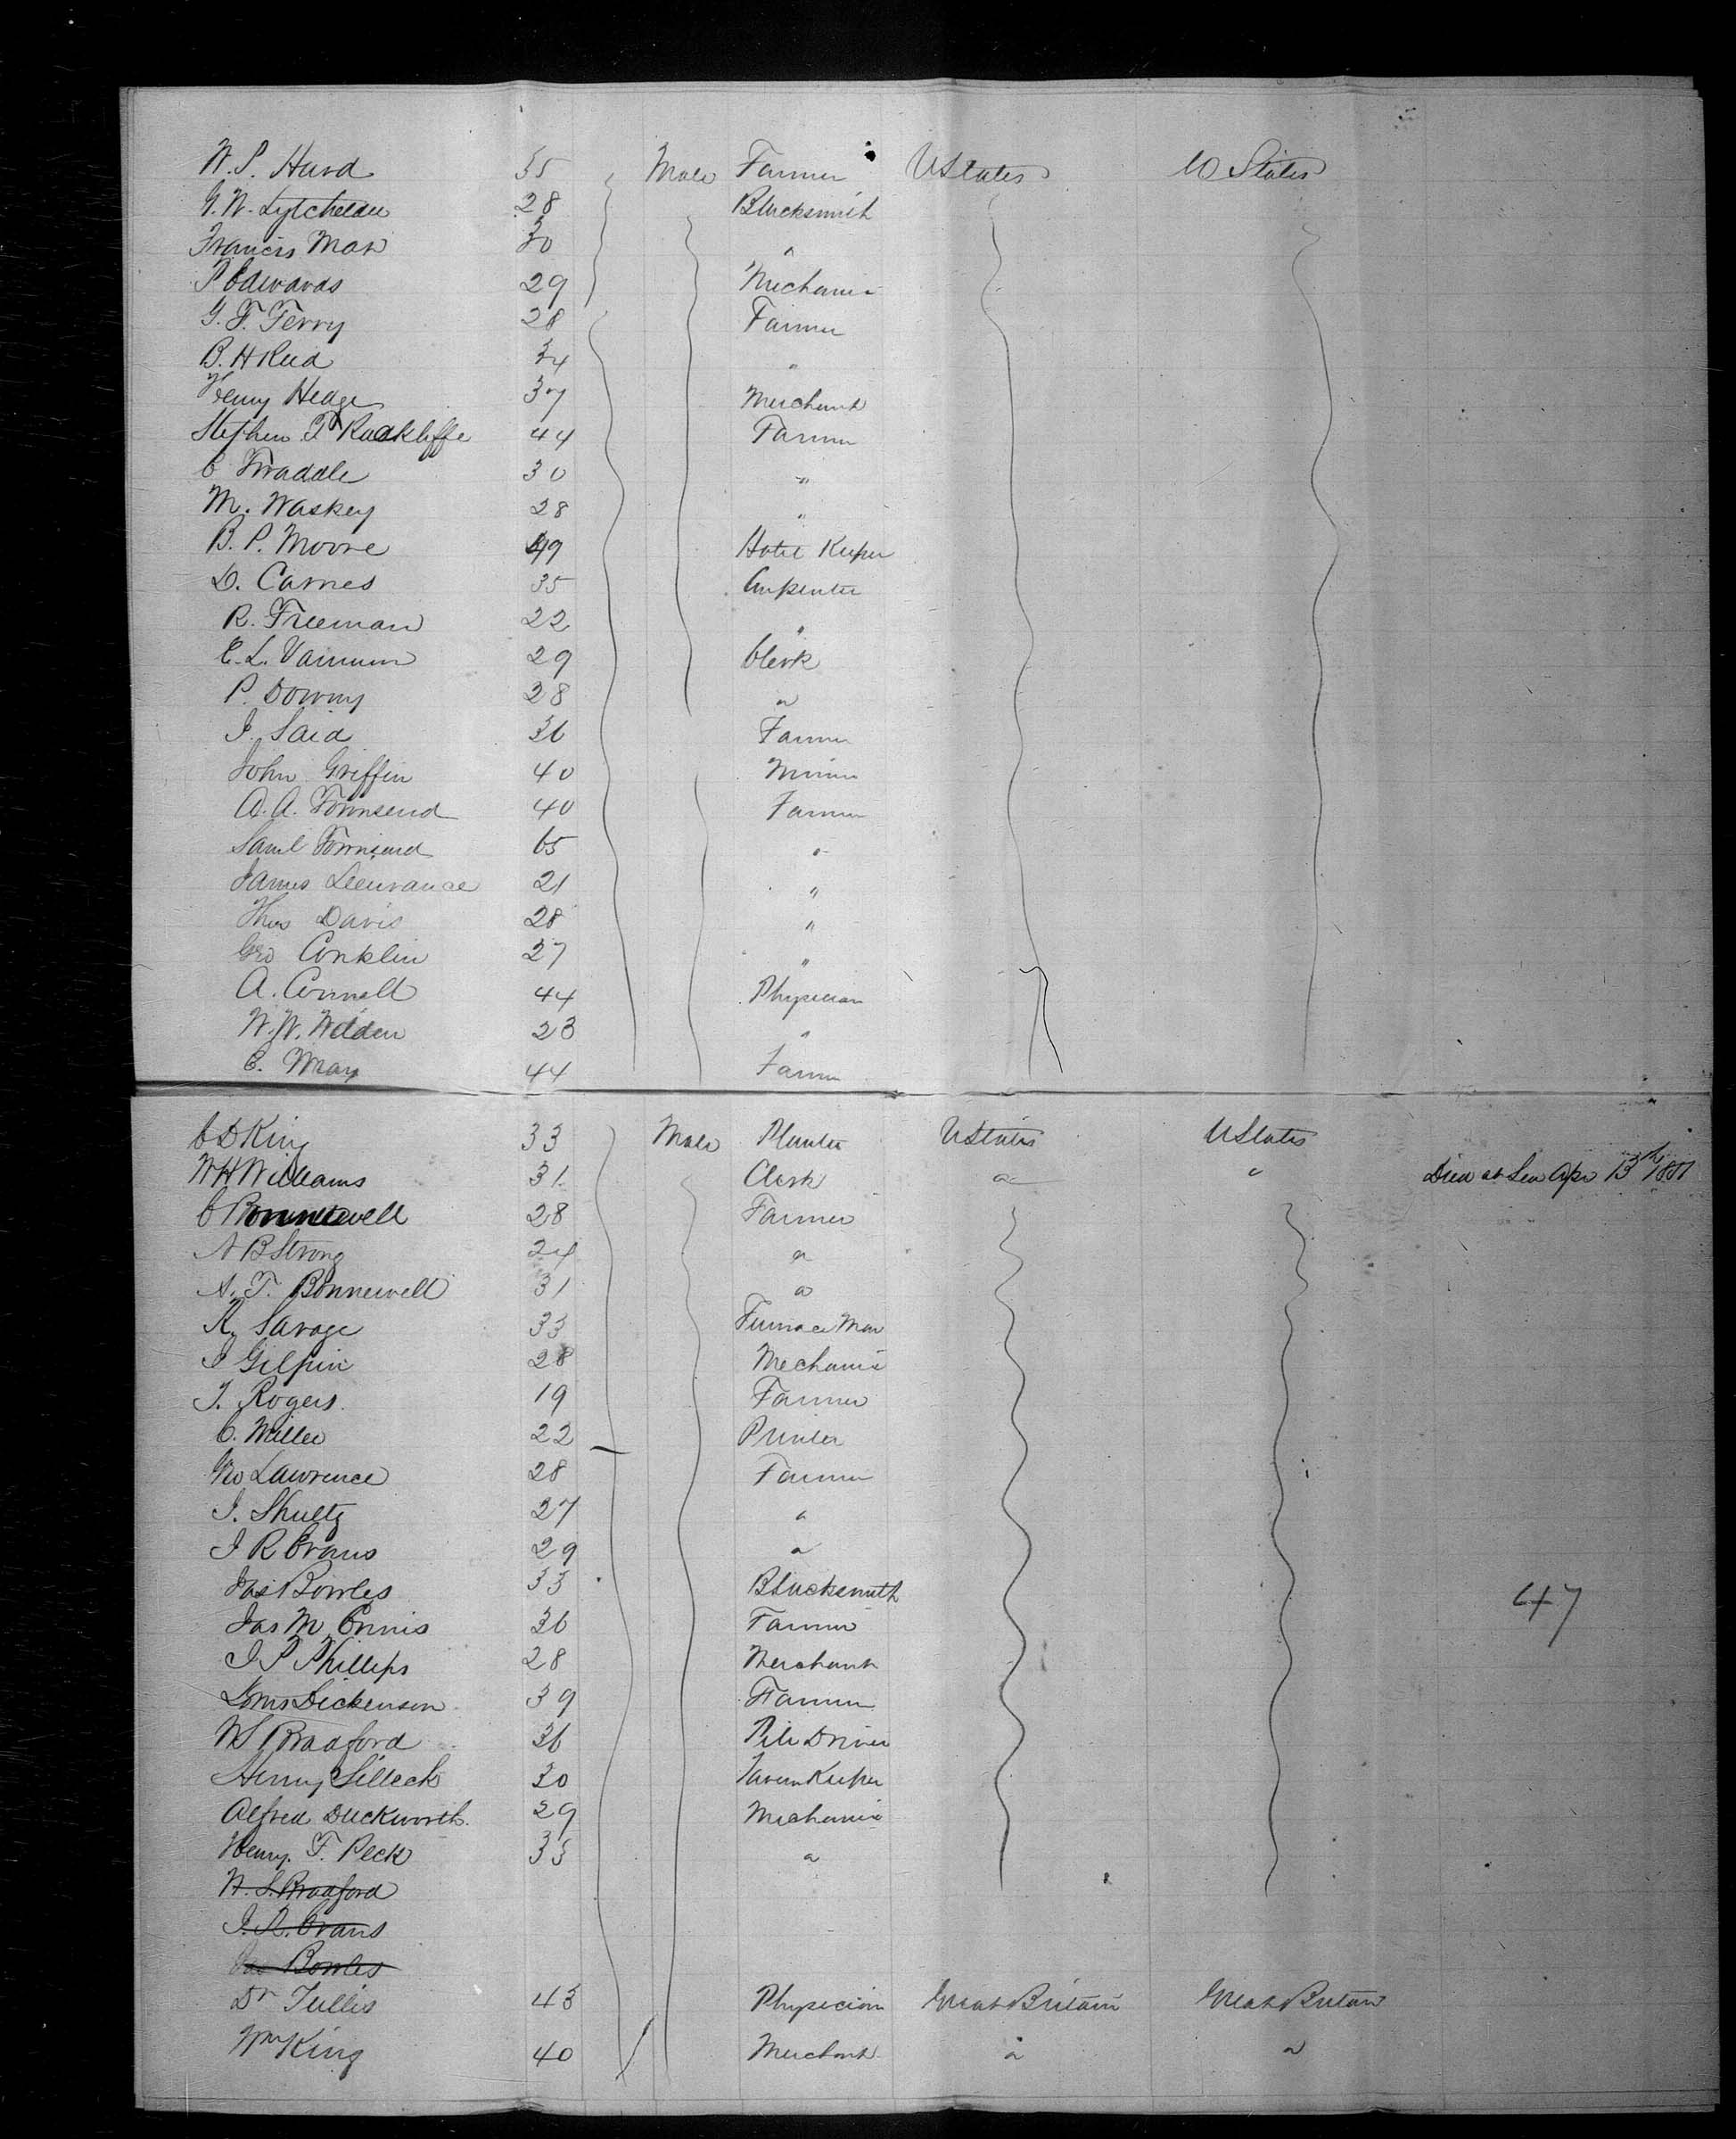 W. P. Hurd 35 Male Farmer U States U States
G. W. 28 Blacksmith
Francis 30 "
P Edwards 29 Mechanic
G. F. Ferry 28 Farmer
B. H Reed 34 "
Henry Hedge 37 Merchant
Stephen T Rackliffe 44 Farmer
C Twaddle 30 "
M. Waskey 28 "
B. P. Moore 49 Hotel Keeper
D. Carnes 35 Carpenter
R. Freeman 22 "
E. L. Varnum 29 Clerk
P. Downy 28 "
J. Said 36 Farmer
John Griffin 40 Miner
A. A. Townsend 40 Farmer
Saml Townsend 65 "
James 21 "
Thos Davis 28 "
Geo Conklin 27 "
A. Connell 44 Physician
W. W. 23 "
C. 44 Farmer
C D King 33 Male Planter U States U States
W H Williams 31 Clerk " " Died at Sea Apr 13th
C Bonnewell 28 Farmer
A B Strong 24 "
A. T. Bonnewell 31 "
R. Savage 33 Furnace Man
J Gilpin 28 Mechanic
J. Rogers. 19 Farmer
C. Miller 22 Printer
Geo Lawrence 28 Farmer
J. Shultz 27 "
J R Evans 29 "
Jas Bowles 33 Blacksmith
Jas M Ennis 36 Farmer
J P Phillips 28 Merchant
Dickenson 39 Farmer
W S Bradford 36 Pile Driver
Henry Silleck 30 Tavern Keeper
Alfred Duckworth. 29 Mechanic
Henry. F. Peck 33 "
W. S. Bradford
J. R. Evans
Jas Bowles
Dr Tullis 43 Physician Great Britain Great Britain
Wm King 40 Merchant " "
47